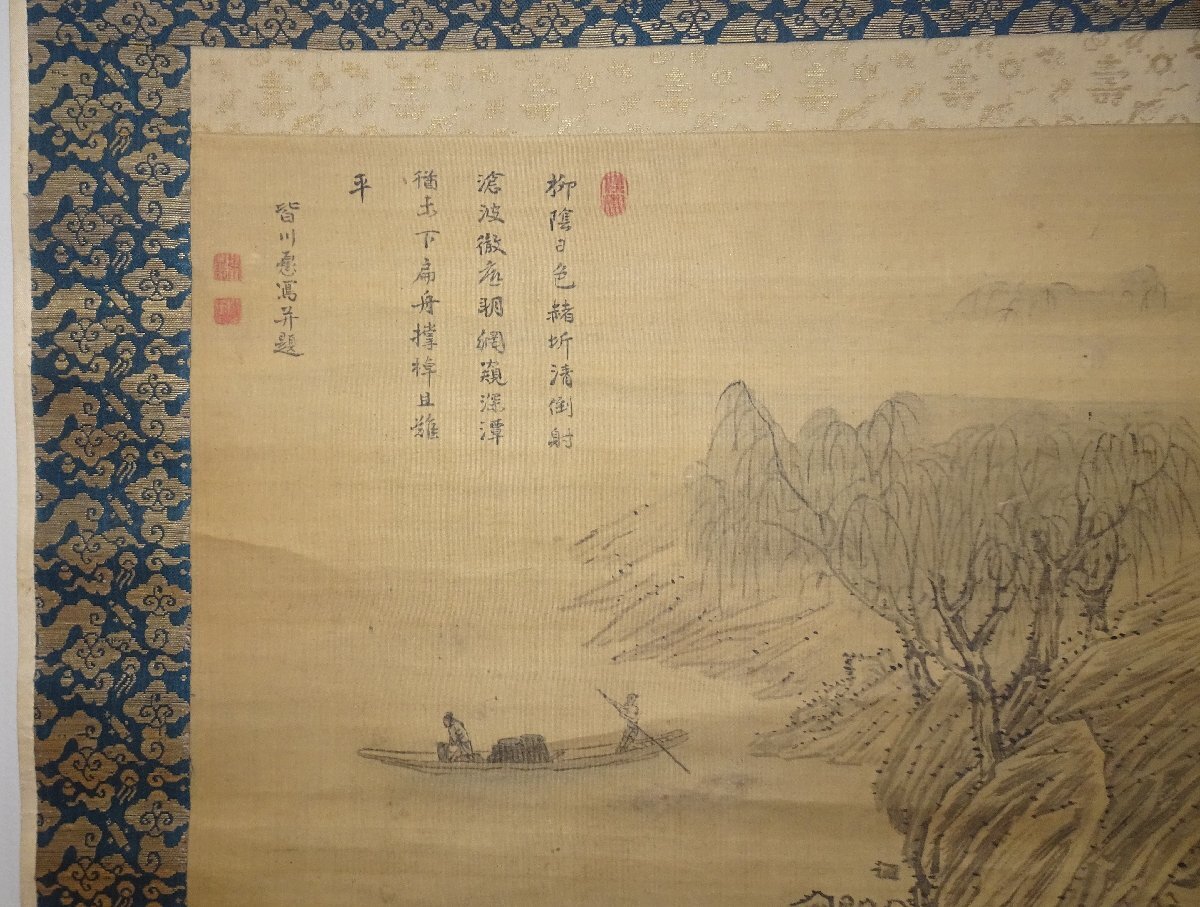 柳陰日色緒圻清倒射
滄波徹底明網窺深潭
猶未下扁舟撑棹且難
平
皆川愿寫并題